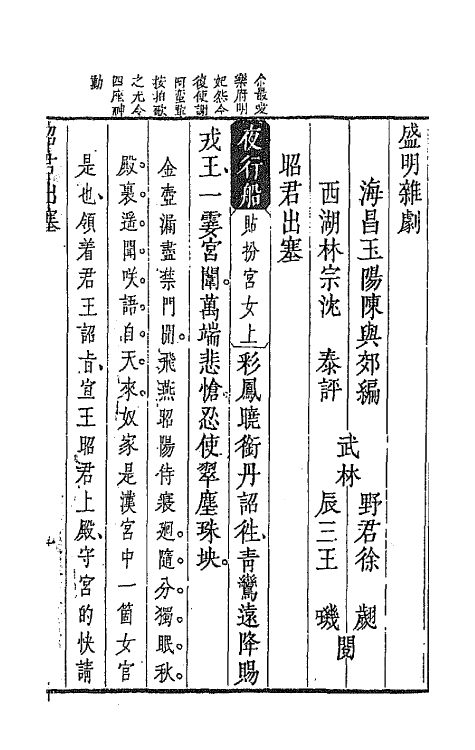 盛明雜劇
海昌玉陽陳與郊編 武林 野君徐 翽
西湖林宗沈 泰評 辰三王 磯 閱
昭君出塞
余最愛
樂府明
妃怨今
復使謝
阿蠻輩
按拍歌
之尤令
四座神
動
夜行船 貼扮宮女上 彩鳳曉銜丹詔徃、青鸞遠降賜
戎王、一霎宮闈。萬端悲愴。忍使翠塵珠坱。
金壺漏盡禁門開。飛燕昭陽侍寢廻。隨分獨眠秋。
殿裏。遥聞咲語自天來。奴家是漢宮中一箇女官
是也、領着君王詔旨、宣王昭君上殿、守宮的快請
昭君出塞